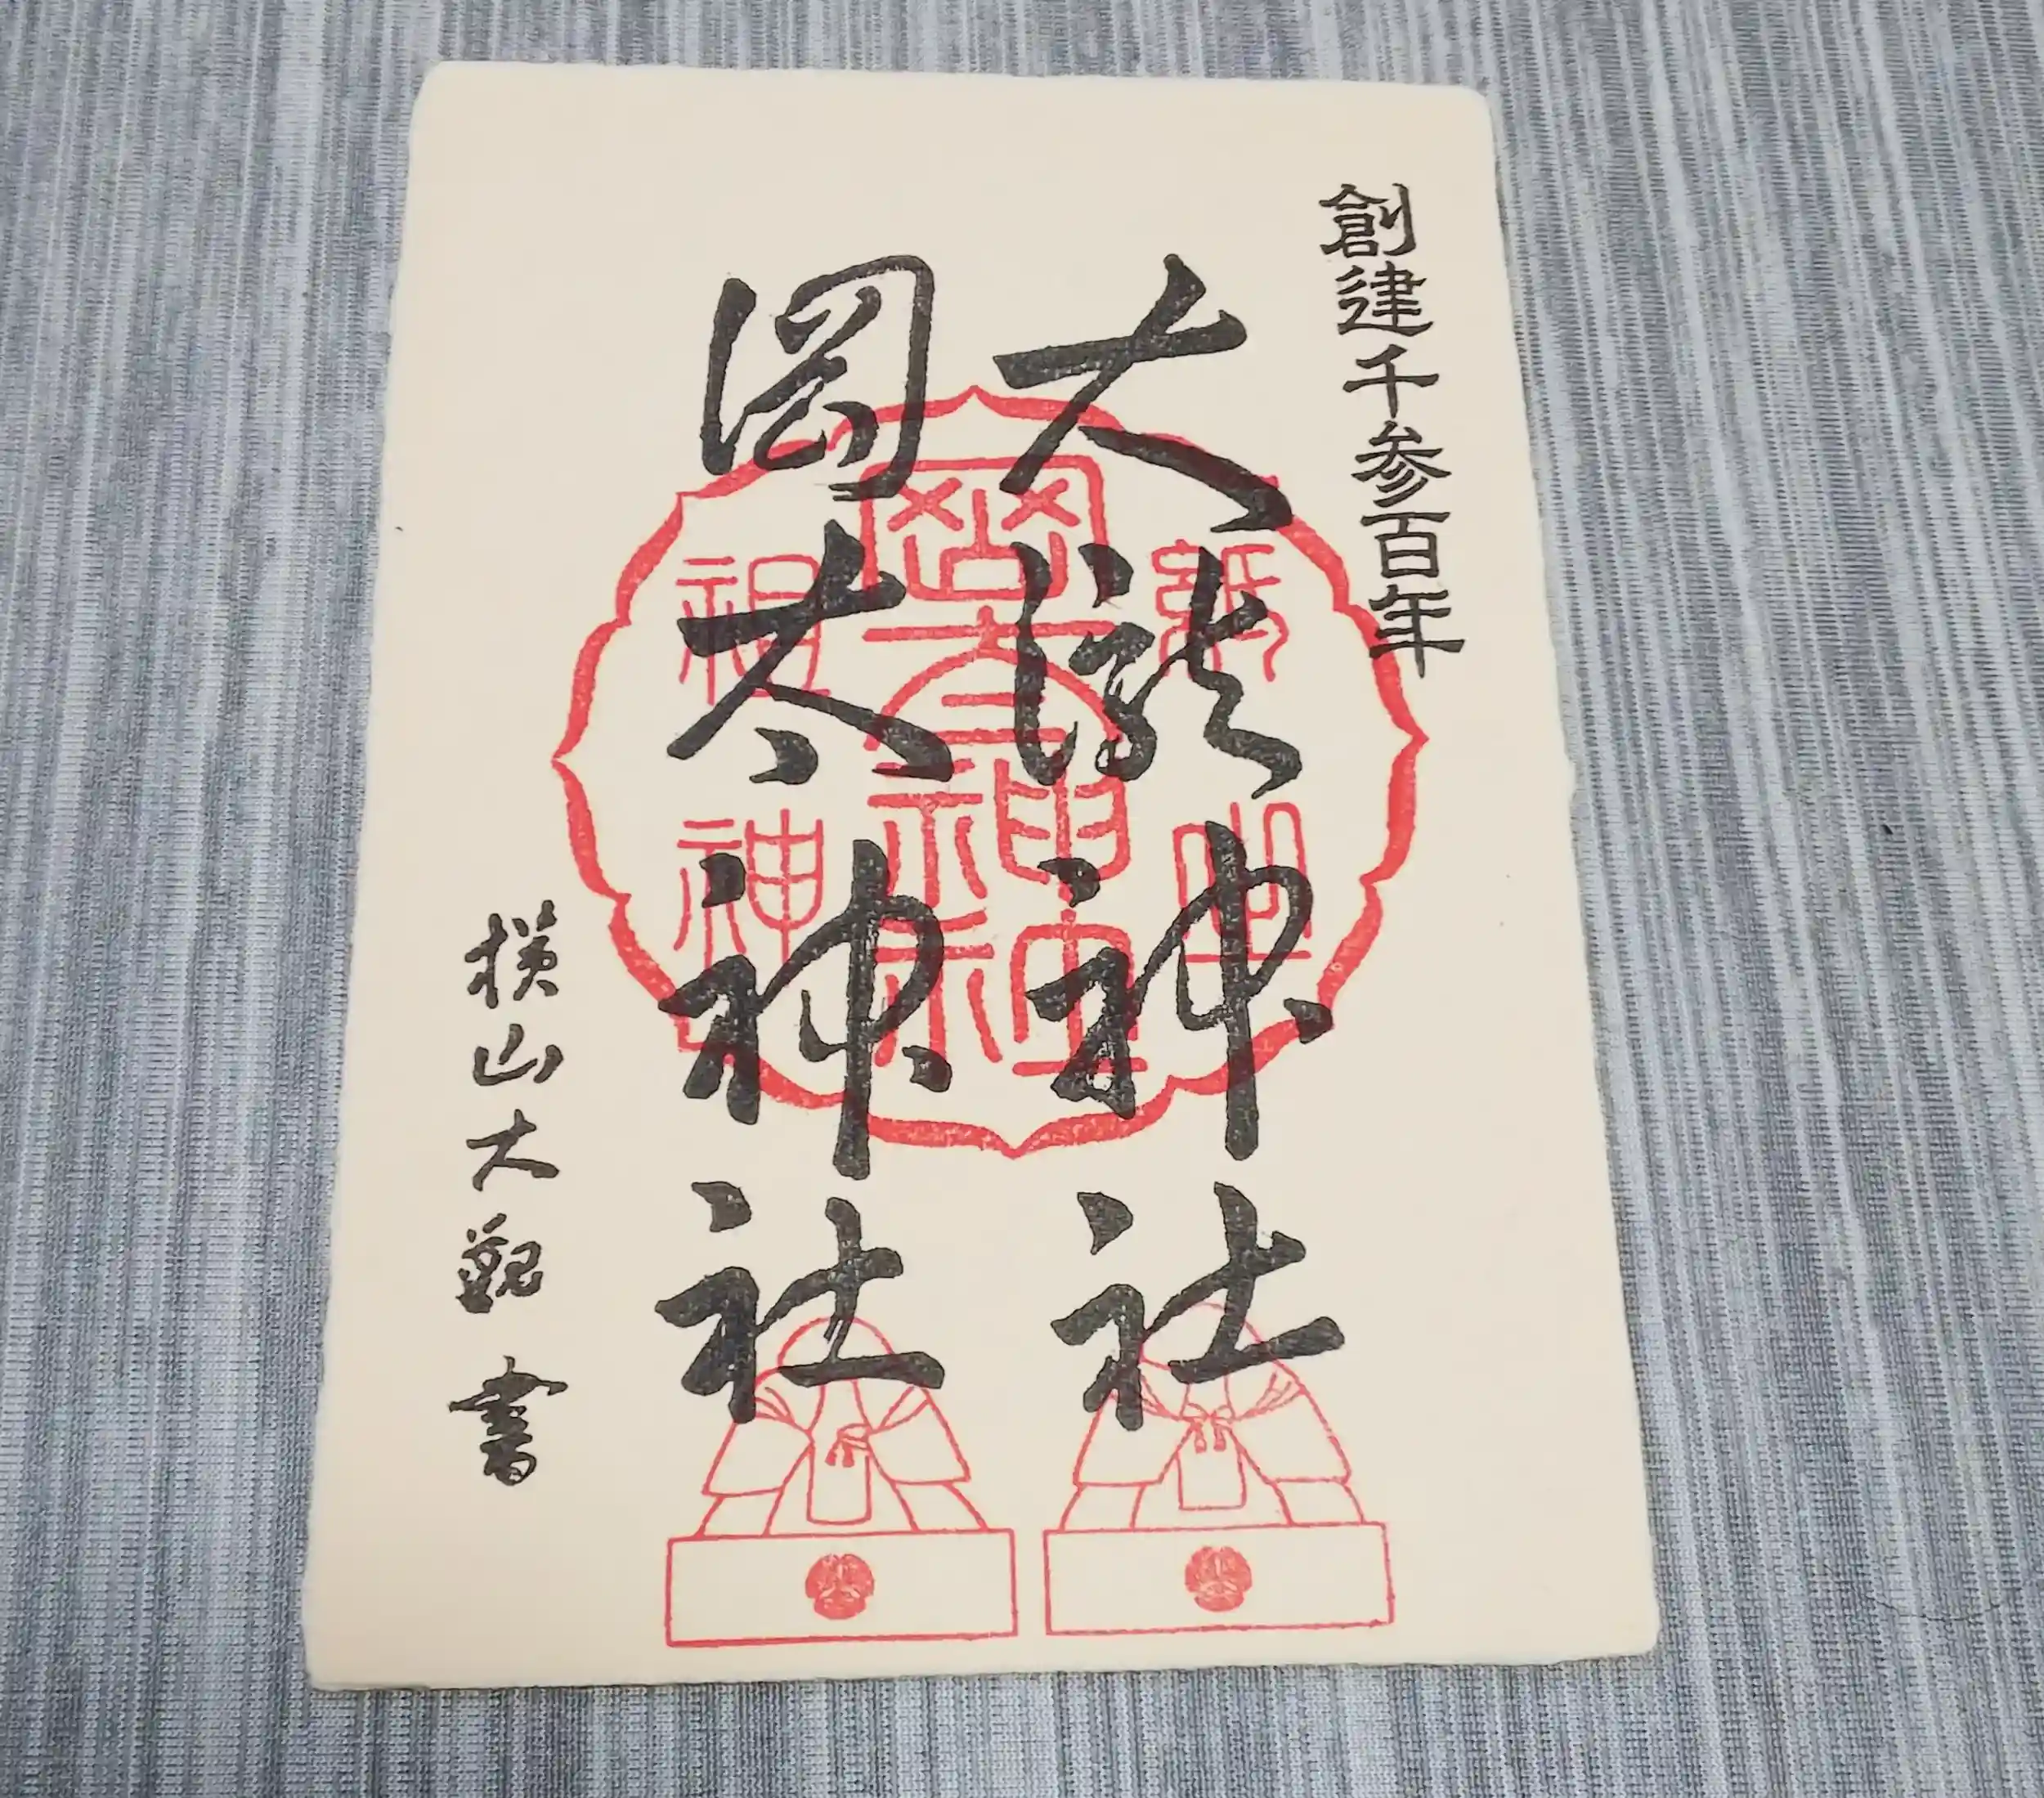 創建千参百年
大瀧神社
岡太神社
横山大観 書
紙
祖
神
岡太神社